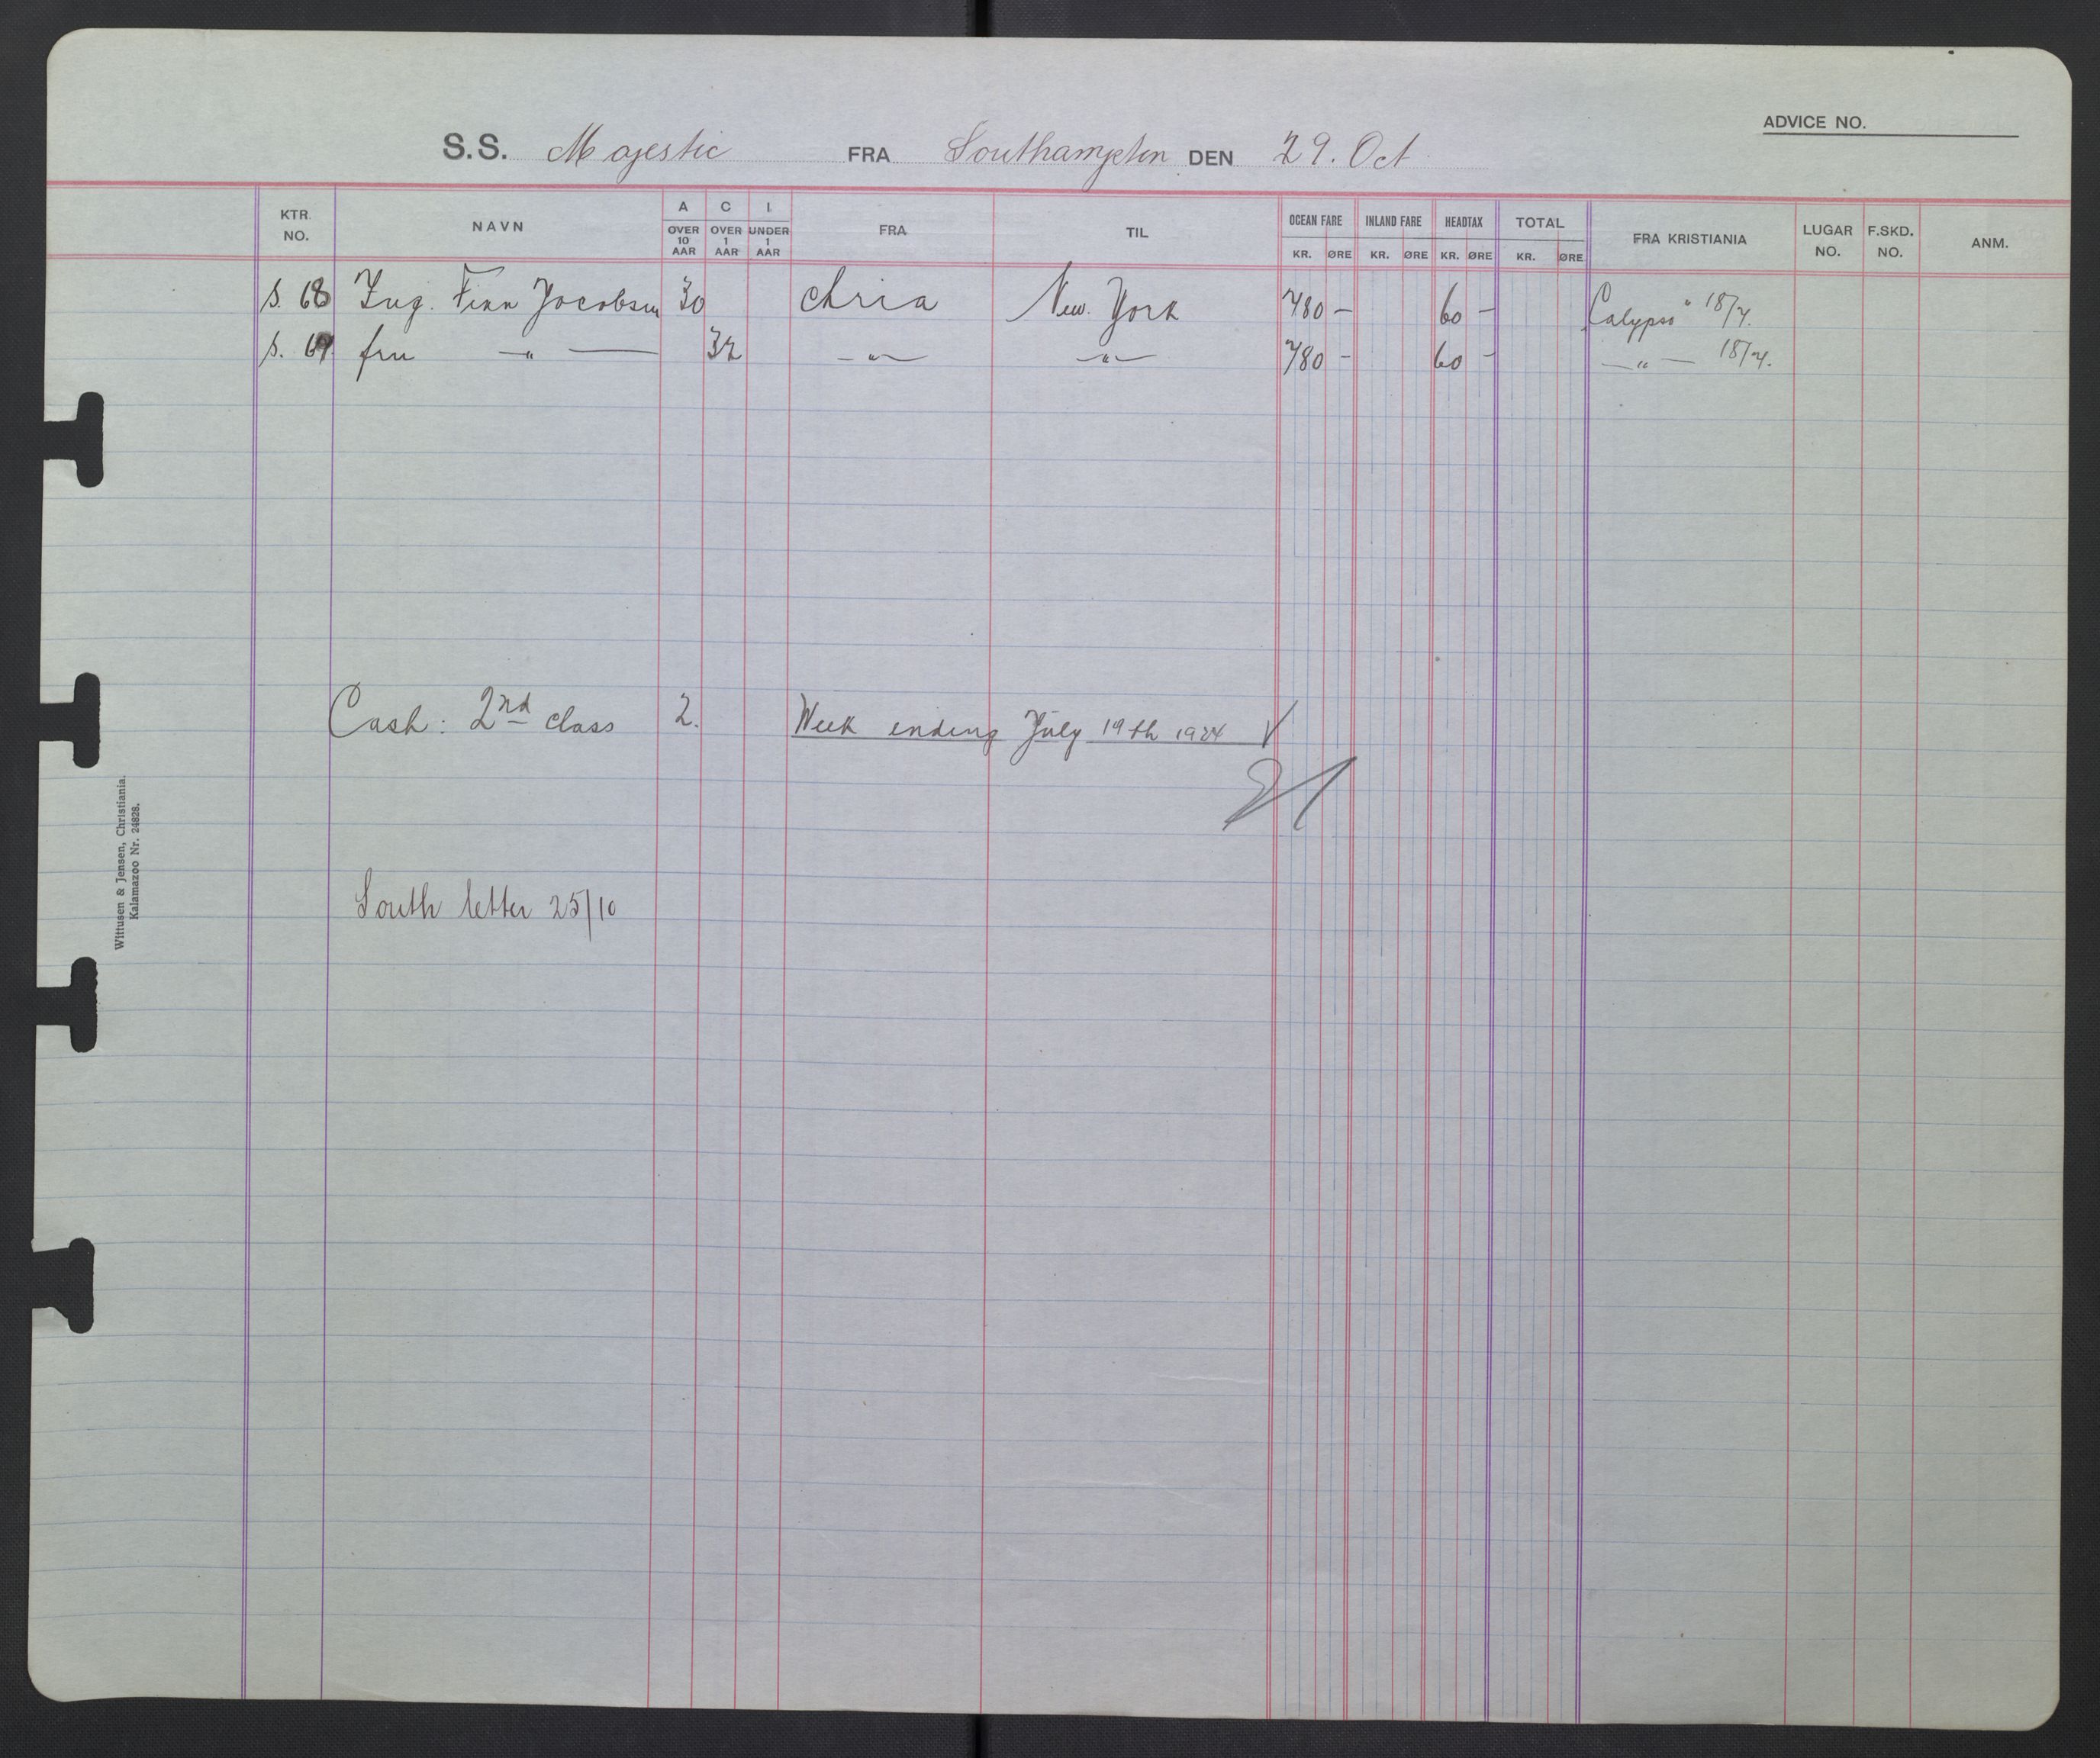 ADVICE NO.
S.S. Majestic FRA Southampton DEN 29. Oct
KTR. NO. NAVN A OVER 10 AAR C OVER 1 AAR I. UNDER 1 AAR FRA TIL OCEAN FARE KR. ØRE INLAND FARE KR. ØRE HEADTAX KR. ØRE TOTAL KR. ØRE FRA KRISTIANIA LUGAR NO. F.SKD. NO. ANM.
S. 68 Ing. Finn Jacobsen 30 Chria New York 780 — 60 — "Calypso" 18/7.
S. 69 fru —"— 32 —"— —"— 780 — 60 — —"— 18/7.
Cash: 2nd class 2. Week ending July 19th 1924 V
South letter 25/10
Wittusen & Jensen, Christiania.
Kalamazoo Nr. 24828.